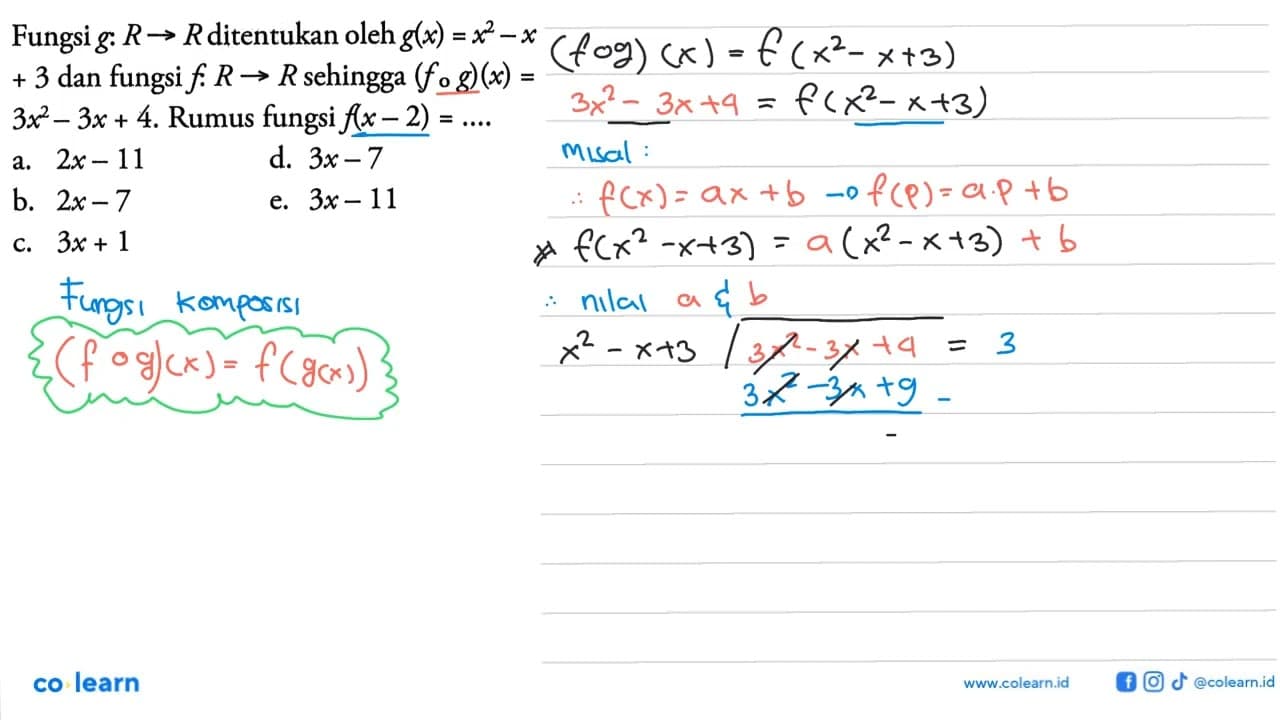 Fungsi g: R → R ditentukan oleh g(x) = x² – x
+ 3 dan fungsi f: R → R sehingga (f o g)(x) =
3x² – 3x + 4. Rumus fungsi f(x – 2) = ....
a. 2x – 11 d. 3x – 7
b. 2x – 7 e. 3x – 11
c. 3x + 1
Fungsi komposisi
(f o g)(x) = f(g(x))
(f o g)(x) = f(x² - x + 3)
3x² - 3x + 4 = f(x² - x + 3)
Misal :
∴ f(x) = ax + b → f(p) = a.p + b
* f(x² - x + 3) = a(x² - x + 3) + b
∴ nilai a & b
x² - x + 3 / 3x² - 3x + 4 = 3
3x² - 3x + 9 -
-
co learn
www.colearn.id @colearn.id